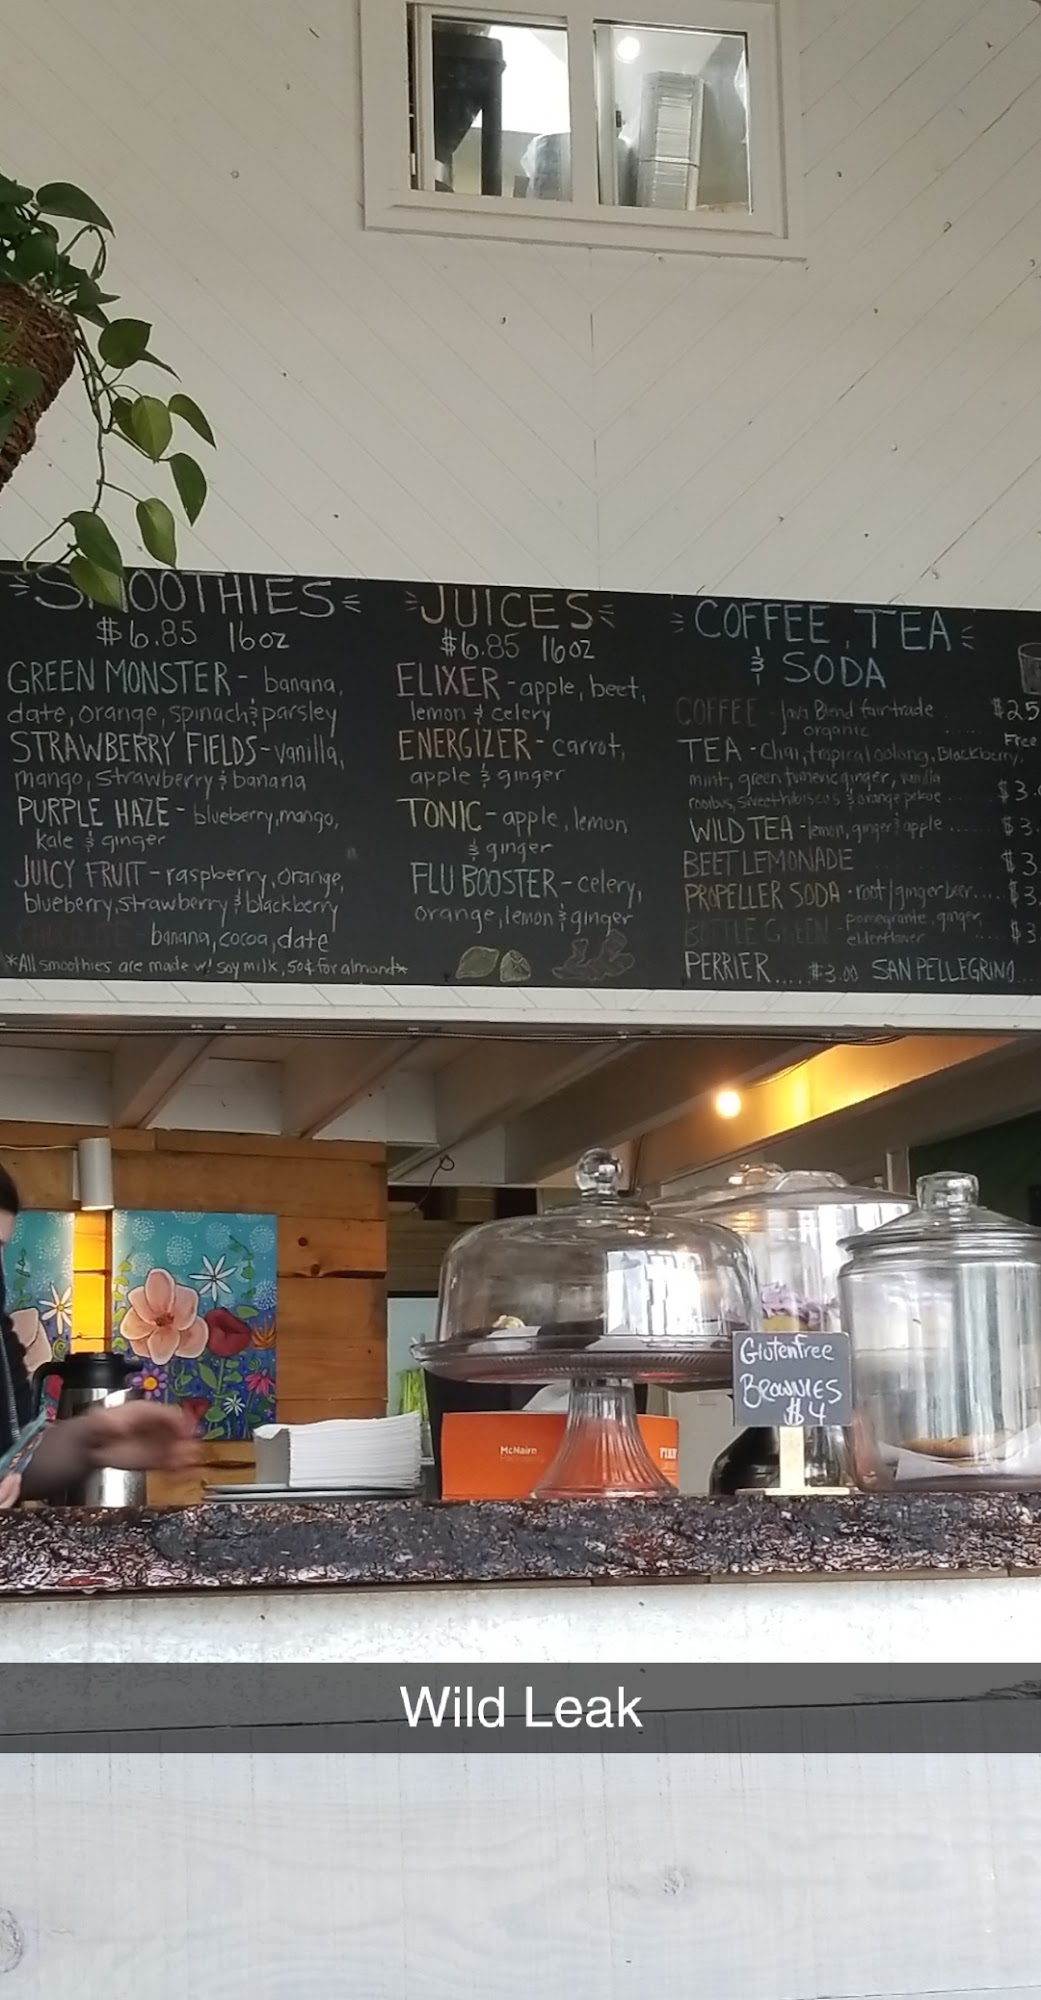 SMOOTHIES
$6.85 16oz
GREEN MONSTER - banana,
date, orange, spinach & parsley
STRAWBERRY FIELDS - vanilla,
mango, strawberry & banana
PURPLE HAZE - blueberry, mango,
kale & ginger
JUICY FRUIT - raspberry, orange,
blueberry, strawberry & blackberry
CHOCOLATE - banana, cocoa, date
*All smoothies are made w/ soy milk, 50¢ for almond*
JUICES
$6.85 16oz
ELIXER - apple, beet,
lemon & celery
ENERGIZER - carrot,
apple & ginger
TONIC - apple, lemon
& ginger
FLU BOOSTER - celery,
orange, lemon & ginger
COFFEE, TEA
& SODA
COFFEE - Java Blend fair trade $25
organic Free
TEA - Chai, tropical oolong, Blackberry,
mint, green tumeric ginger, vanilla
rooibus, sweet hibiscus & orange pekoe ...... $3.
WILD TEA - lemon, ginger & apple ...... $3.
BEET LEMONADE $3
PROPELLER SODA - root/ginger beer.... $3.
BOTTLE GREEN - pomegrante, ginger,
elderflower ..... $3
PERRIER..... $3.00 SAN PELLEGRINO...
Glutenfree
BROWNIES
$4
McNairn
Wild Leak